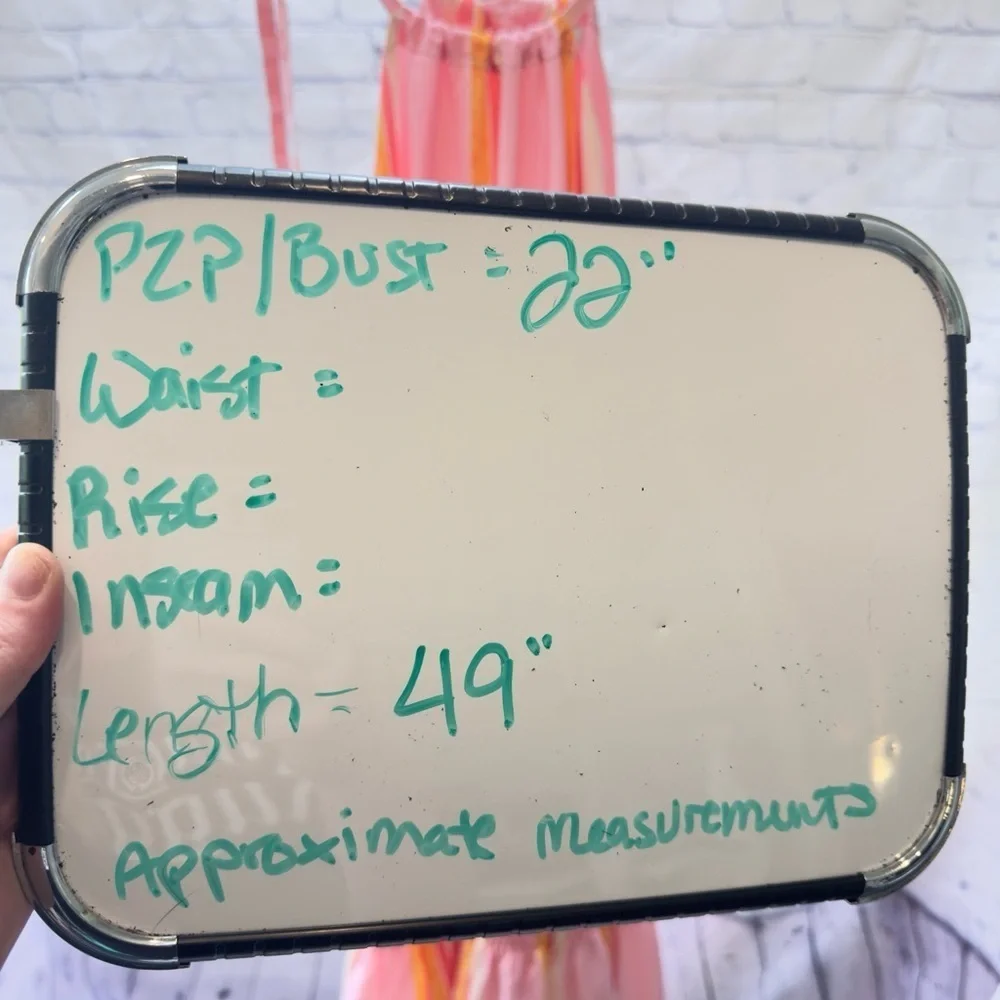 P2P/Bust = 22"
Waist =
Rise =
Inseam =
Length = 49"
Approximate Measurements